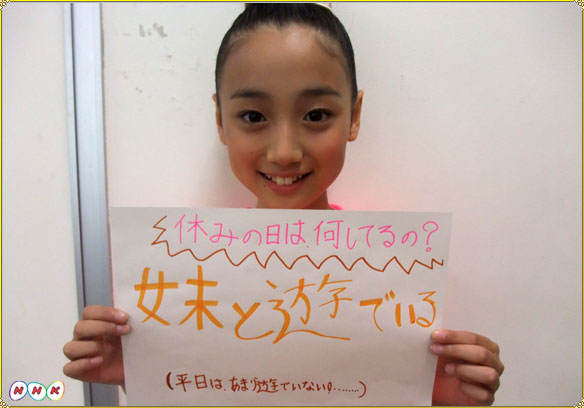 休みの日は、何してるの?
妹と遊でいる
(平日は、あまり遊でいない。……)
NHK